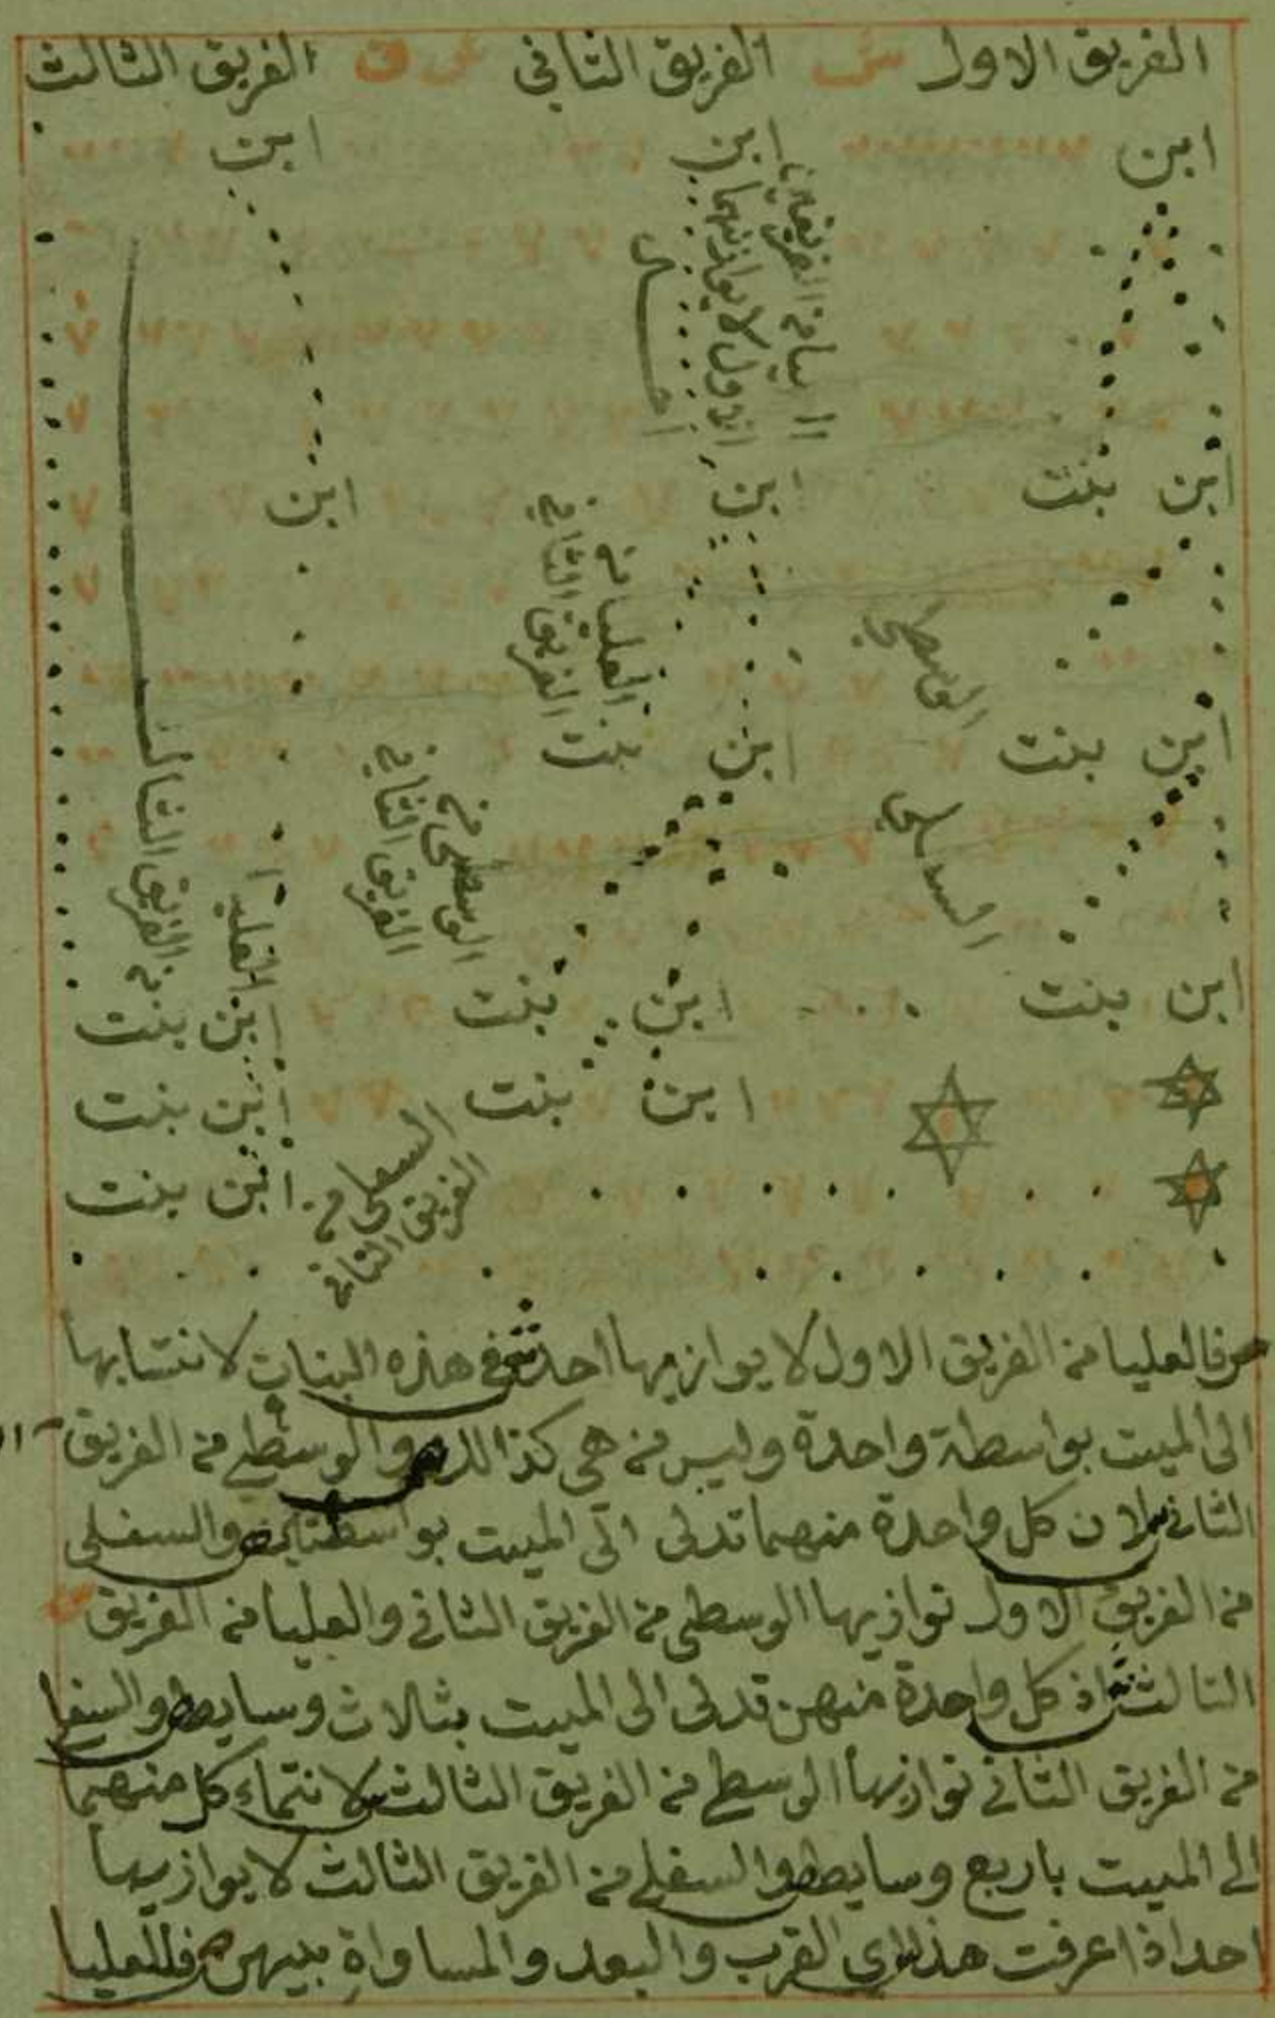 الفريق الاول ش الفريق الثاني ش ق الفريق الثالث
ابن ابن ابن
ابن بنت ابن ابن
الوسطى
العليا من
الفريق الثاني
ابن بنت ابن بنت
السفلى
الوسطى من
الفريق الثاني
العليا
من الفريق الثالث
ابن بنت ابن بنت ابن بنت
ابن بنت ابن بنت
السفلى من
الفريق الثاني
ابن بنت
فالعليا من الفريق الاول لا يوازيها احد ش في هذه البنات لانتسابها
الى الميت بواسطة واحدة وليس من هي كذالك والوسطى من الفريق
الثاني لان كل واحدة منهما تدلى الى الميت بواسطتين ص والسفلى
من الفريق الاول توازيها الوسطى من الفريق الثاني والعليا من الفريق
الثالث ش اذ كل واحدة منهن تدلى الى الميت بثلاث وسايط ص والسفلى
من الفريق الثاني توازيها الوسطى من الفريق الثالث ش لانتماء كل منهما
الى الميت باربع وسايط ص والسفلى من الفريق الثالث لا يوازيها
احد اذا عرفت هذا ش اي القرب والبعد والمساواة بينهن ص فللعليا